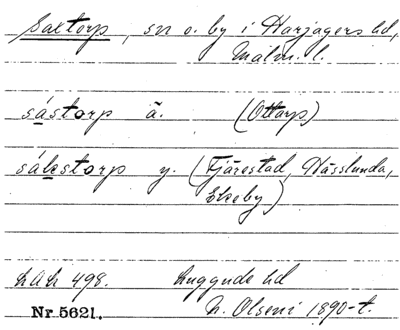 Saxtorp, sn o. by i Harjagers hd,
Malm. l.
såstorp ä. (Ottarp)
sákstorp y. (Fjärestad, Hässlunda,
Ekeby)
LAL 498. Luggude hd
Nr 5621. N. Olseni 1890-t.